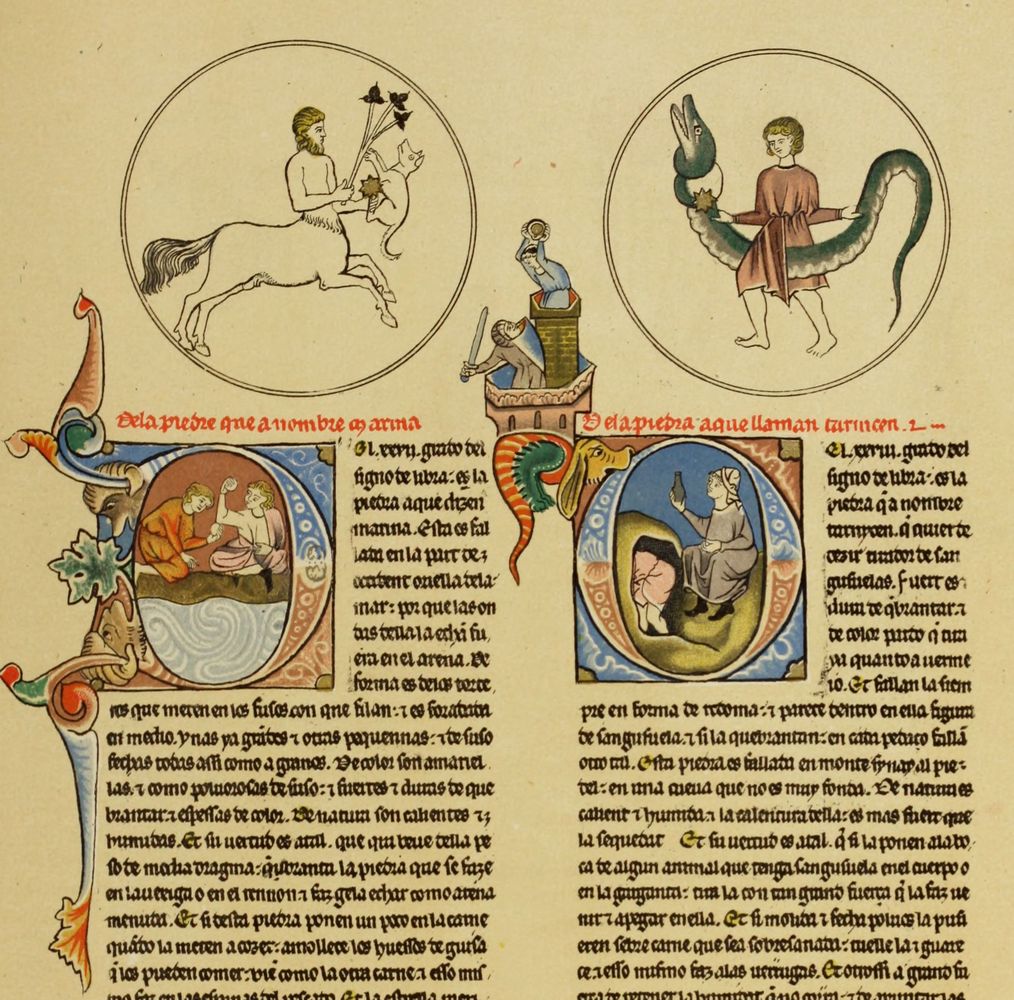 De la piedre que a nombre marina
El .xxxij. grado del
signo de libra: es la
piedra a que dizen
marina. Esta es fal
lada en la part de
occident orella dela
mar: por que las on
das della la echan fu
era en el arena. De
forma es delos torte
ros que meten en los fusos con que filan: ⁊ es foradada
en medio. ⁊ unas ya grãdes ⁊ otras pequennas: ⁊ de suso
fechas todas assi como a granos. De color son amariel
las. ⁊ como poluorosas de suso: ⁊ fuertes ⁊ duras de que
brantar: ⁊ espessas de color. De natura son calientes ⁊
humidas. Et su uertud es atal. que qui beue della pe
so de media dragma: q̃branta la piedra que se faze
en la uexiga o en el rennon ⁊ faz gela echar como arena
menuda. Et si desta piedra ponen un poco en la carne
quãdo la meten a cozer: amollece los huessos de guisa
q̃ los pueden comer: bien como la otra carne: ⁊ esso mis
De la piedra a que llaman turincen.
El .xxxiii. grado del
signo de libra: es la
piedra q̃ a nombre
q̃ quier de
zir tirador de san
guisuelas. Fuert es
⁊ dura de q̃brantar: ⁊
de color pardo q̃ tira
ya quanto a uerme
io. Et fallan la siem
pre en forma de redoma: ⁊ parece dentro en ella figura
de sanguisuela. ⁊ si la quebrantan: en cada pedaço fallã
otro tal. Esta piedra es fallada en monte synay al pie
del: en una cueua que no es muy fonda. De natura es
calient ⁊ humida: ⁊ la calentura della: es mas fuert que
la sequedat Et su uertud es atal. q̃ si la ponen a la bo
ca de algun animal que tenga sanguisuela en el cuerpo o
en la garganta: tira la con tan grand fuerça q̃ la faz ue
nir ⁊ apegar en ella. Et si molida ⁊ fecha poluos la pusi
eren sobre carne que sea sobresanada: tuelle la ⁊ guare
ce: ⁊ esso mismo faz alas uerrugas. Et otrossi a grand fu